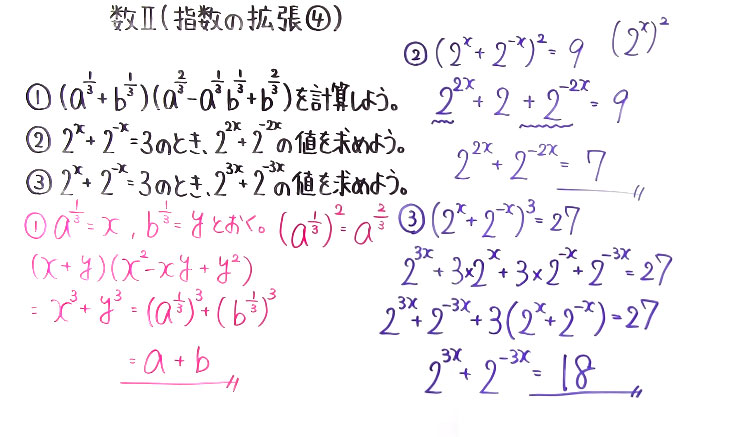 数Ⅱ(指数の拡張④)
① (a^{1/3} + b^{1/3})(a^{2/3} - a^{1/3}b^{1/3} + b^{2/3})を計算しよう。
② 2^x + 2^{-x} = 3のとき、2^{2x} + 2^{-2x}の値を求めよう。
③ 2^x + 2^{-x} = 3のとき、2^{3x} + 2^{-3x}の値を求めよう。
① a^{1/3} = x , b^{1/3} = yとおく。 (a^{1/3})^2 = a^{2/3}
(x + y)(x^2 - xy + y^2)
= x^3 + y^3 = (a^{1/3})^3 + (b^{1/3})^3
= a + b
② (2^x + 2^{-x})^2 = 9 (2^x)^2
2^{2x} + 2 + 2^{-2x} = 9
2^{2x} + 2^{-2x} = 7
③ (2^x + 2^{-x})^3 = 27
2^{3x} + 3×2^x + 3×2^{-x} + 2^{-3x} = 27
2^{3x} + 2^{-3x} + 3(2^x + 2^{-x}) = 27
2^{3x} + 2^{-3x} = 18